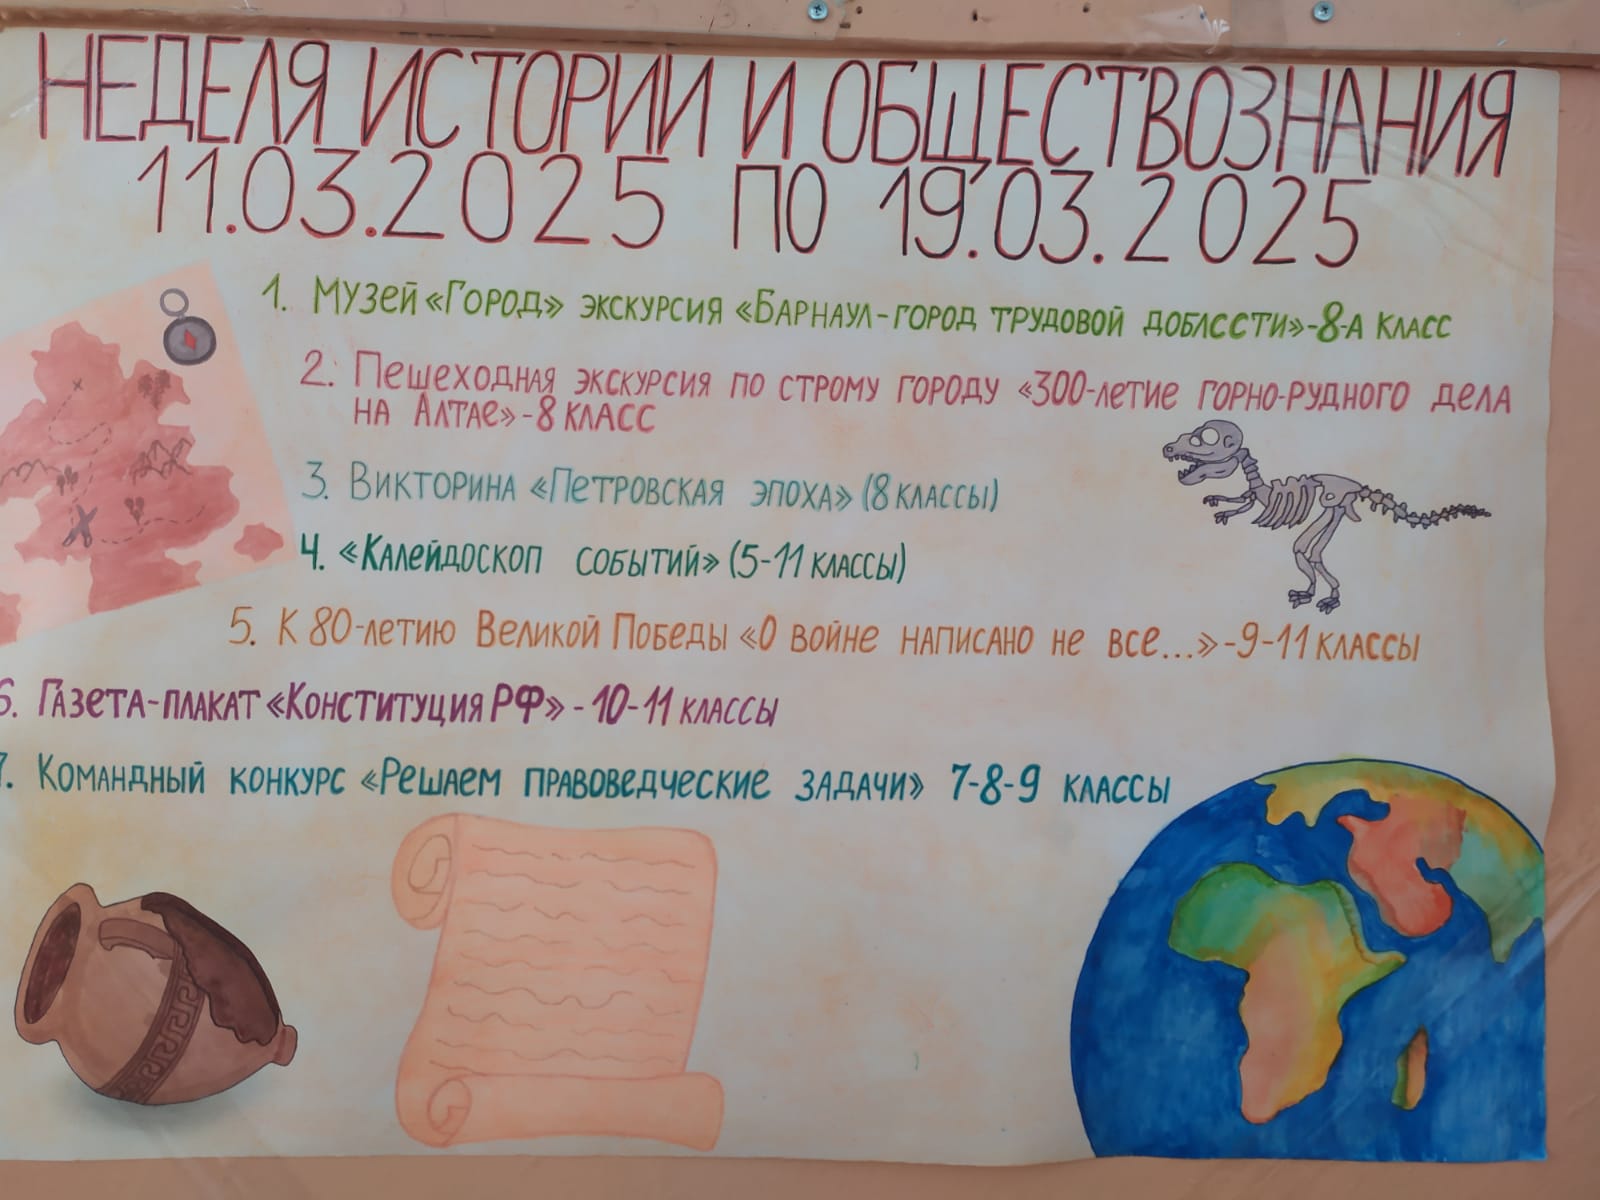 НЕДЕЛЯ ИСТОРИИ И ОБЩЕСТВОЗНАНИЯ
11.03.2025 ПО 19.03.2025
1. МУЗЕЙ «ГОРОД» ЭКСКУРСИЯ «БАРНАУЛ-ГОРОД ТРУДОВОЙ ДОБЛССТИ»-8-А КЛАСС
2. ПЕШЕХОДНАЯ ЭКСКУРСИЯ ПО СТРОМУ ГОРОДУ «300-ЛЕТИЕ ГОРНО-РУДНОГО ДЕЛА
НА АЛТАЕ»-8 КЛАСС
3. ВИКТОРИНА «ПЕТРОВСКАЯ ЭПОХА» (8 КЛАССЫ)
4. «КАЛЕЙДОСКОП СОБЫТИЙ» (5-11 КЛАССЫ)
5. К 80-ЛЕТИЮ ВЕЛИКОЙ ПОБЕДЫ «О ВОЙНЕ НАПИСАНО НЕ ВСЕ...»-9-11 КЛАССЫ
6. ГАЗЕТА-ПЛАКАТ «КОНСТИТУЦИЯ РФ» - 10-11 КЛАССЫ
7. КОМАНДНЫЙ КОНКУРС «РЕШАЕМ ПРАВОВЕДЧЕСКИЕ ЗАДАЧИ» 7-8-9 КЛАССЫ